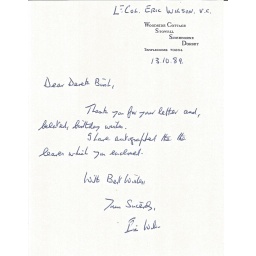 Lt-Col. Eric Wilson. V.C.
Woodside Cottage
Stowell
Sherborne
Dorset
13.10.89.
Dear Derek Bird,
Thank you for your letter and,
belated, birthday wishes.
I have autographed the
which you enclosed.
With Best Wishes
Yours Sincerely,
Eric Wilson